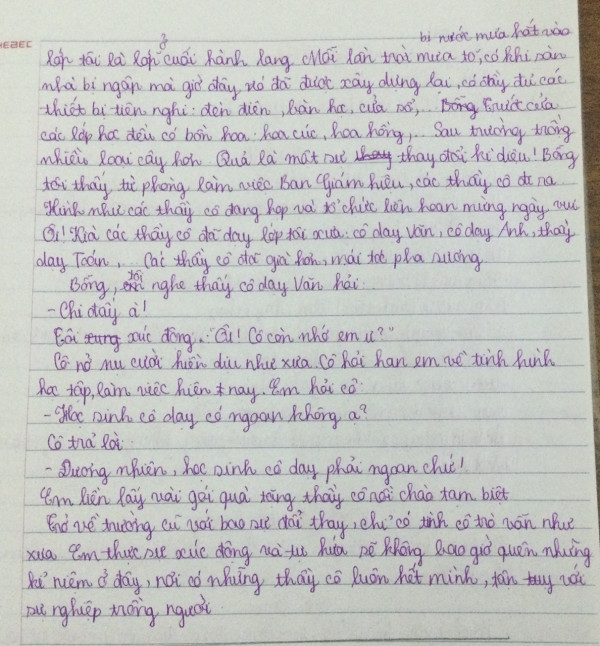 HEBEC
bị nước mưa hất vào
lớp tôi là lớp ở cuối hành lang. Mỗi lần trời mưa to, có khi sàn
nhà bị ngập mà giờ đây nó đã được xây dựng lại, có đầy đủ các
thiết bị tiện nghi: đèn điện, bàn học, cửa sổ,... Bồng Trước cửa
các lớp học đều có bồn hoa: hoa cúc, hoa hồng,... Sau trường trồng
nhiều loại cây hơn. Quả là một sự thay thay đổi kì diệu! Bỗng
tôi thấy từ phòng làm việc Ban Giám hiệu, các thầy cô đi ra.
Hình như các thầy cô đang họp và tổ chức liên hoan mừng ngày vui
Ôi! Kìa các thầy cô đã dạy lớp tôi xưa: cô dạy Văn, cô dạy Anh, thầy
dạy Toán,... Các thầy cô đã già hơn, mái tóc pha sương.
Bỗng, tôi nghe thấy cô dạy Văn hỏi:
- Chi đấy à!
Tôi xung xúc động: "Ôi! Cô còn nhớ em ư?"
Cô nở nụ cười hiền dịu như xưa. Cô hỏi han em về tình hình
học tập, làm việc hiện nay. Em hỏi cô:
- Học sinh cô dạy có ngoan không ạ?
Cô trả lời:
- Đương nhiên, học sinh cô dạy phải ngoan chứ!
Em liền lấy vài gói quà tặng thầy cô rồi chào tạm biệt
Trở về trường cũ với bao sự đổi thay, chỉ có tình cô trò vẫn như
xưa. Em thực sự xúc động và tự hứa sẽ không bao giờ quên những
kỉ niệm ở đây, nơi có những thầy cô luôn hết mình, tận tuỵ với
sự nghiệp trồng người.